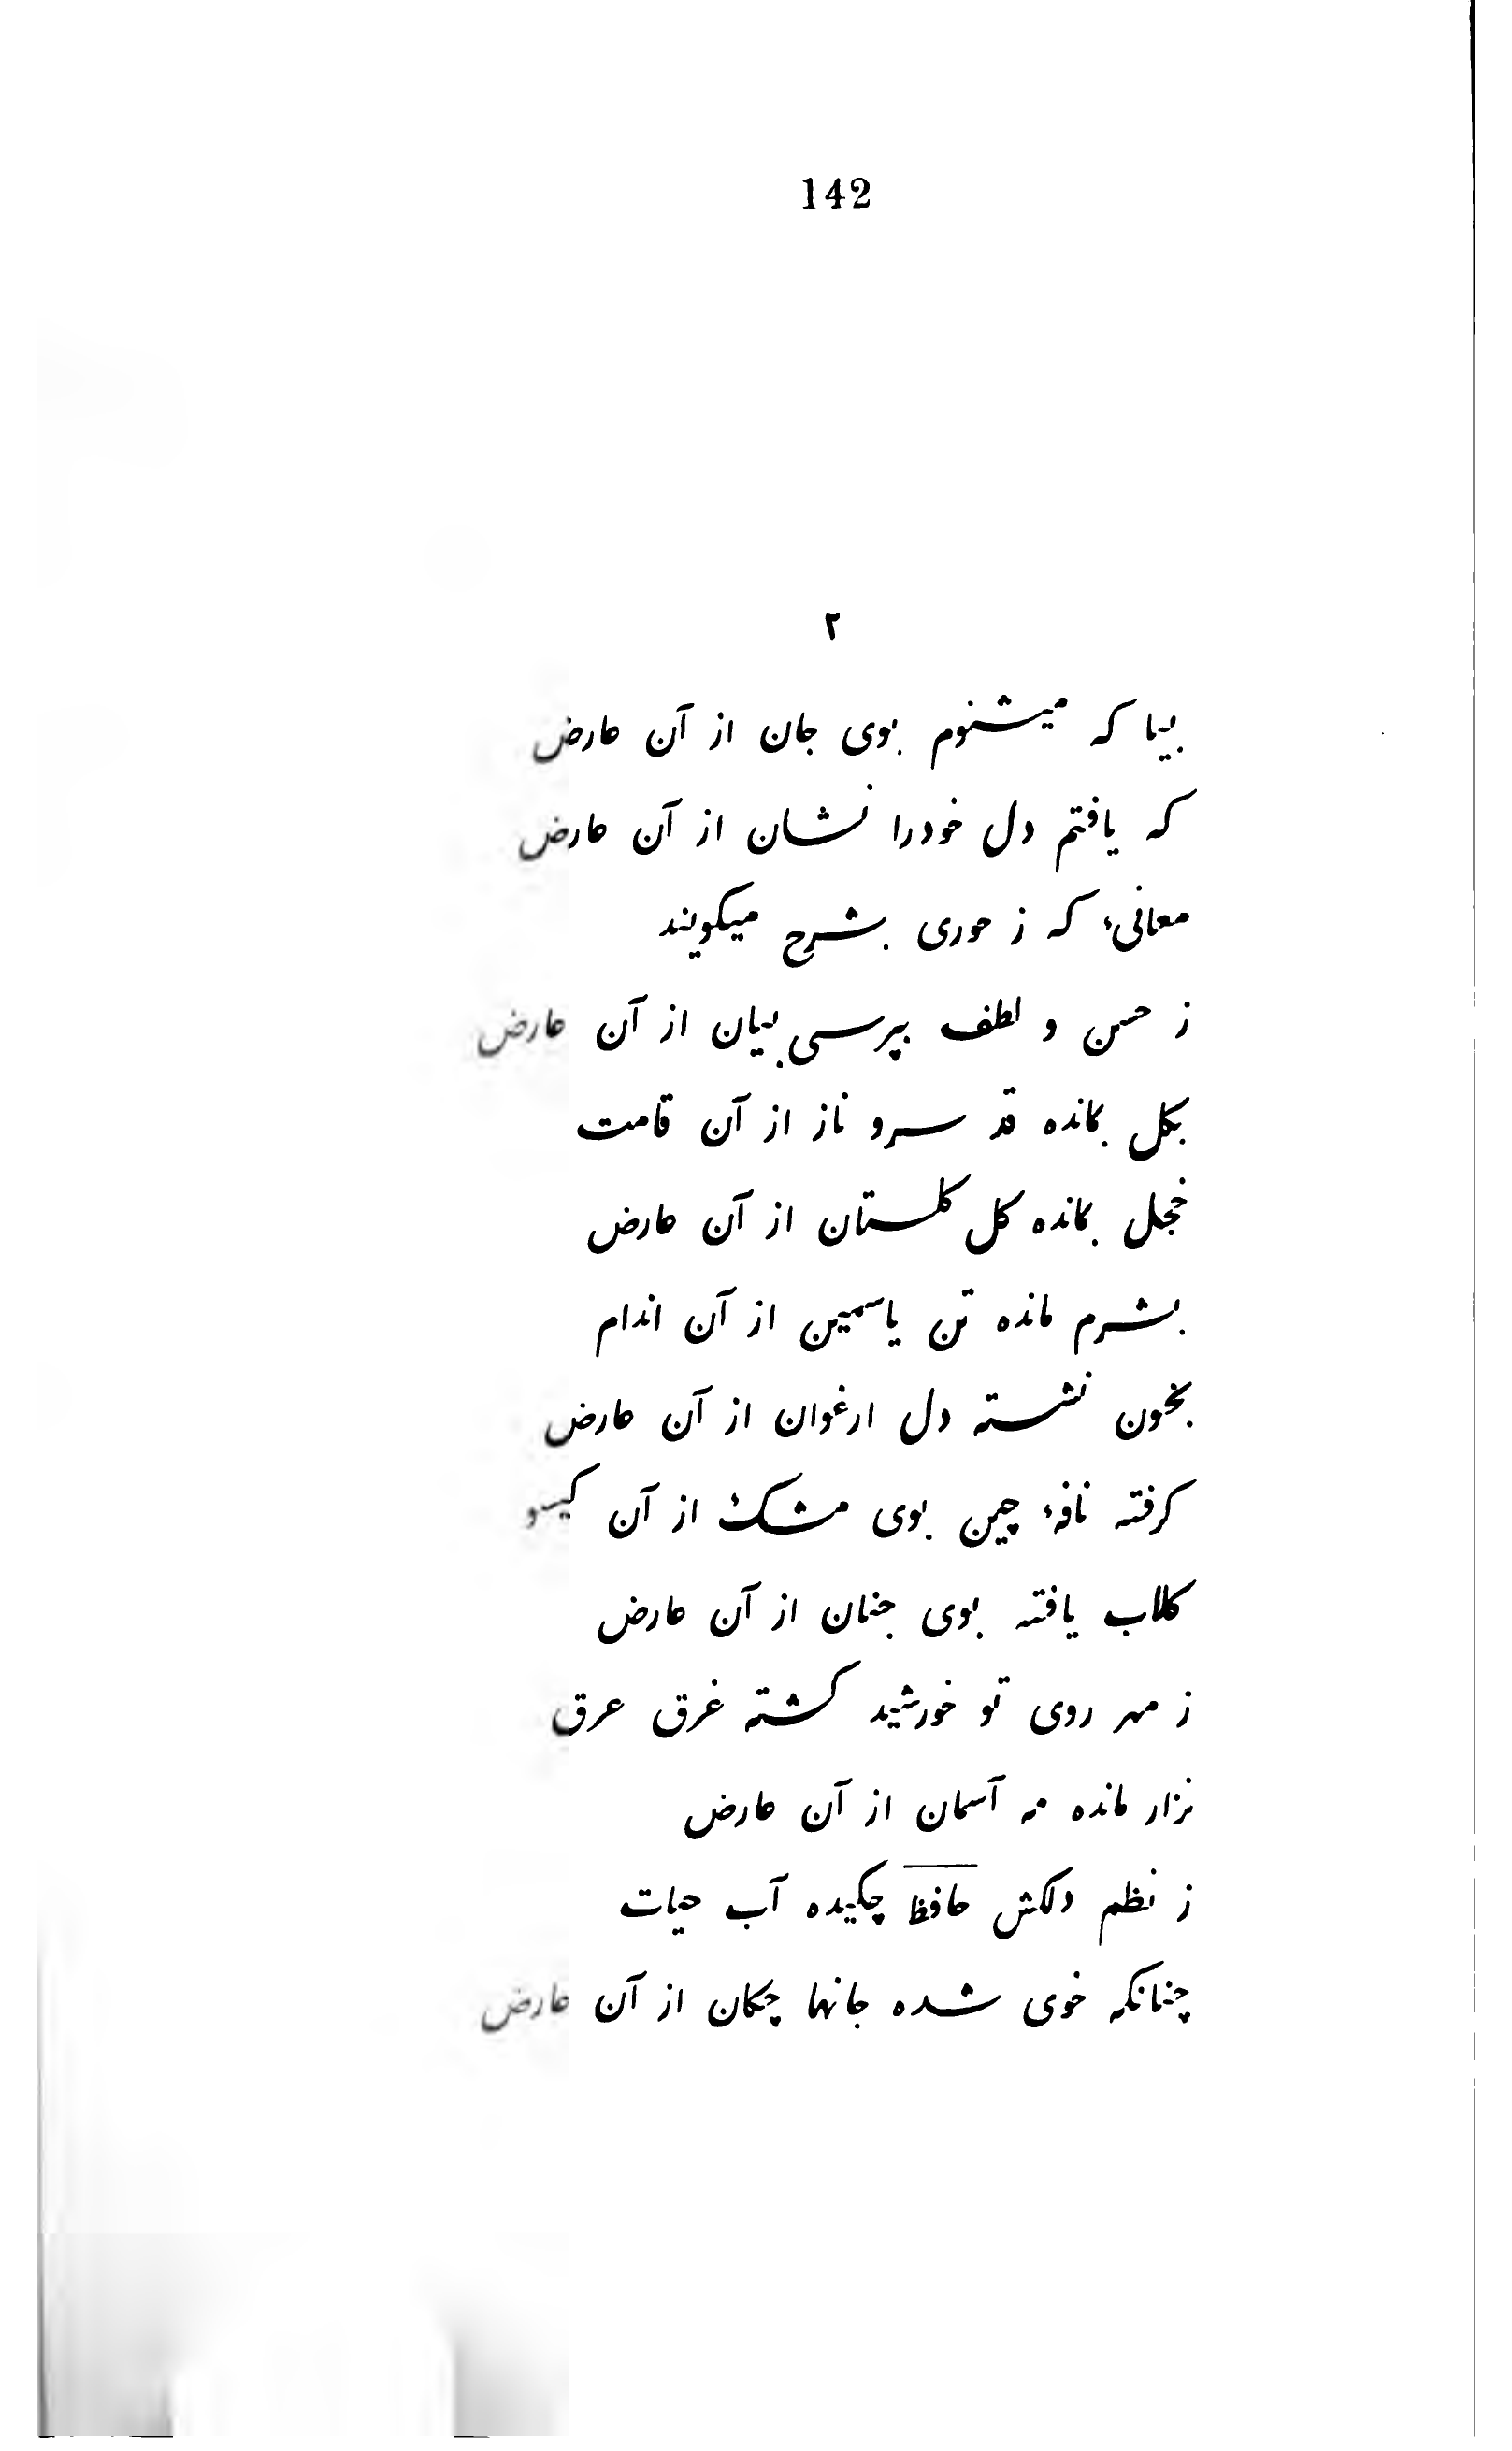 142
۲
بیا که میشنوم بوی جان از آن عارض
که یافتم دل خودرا نشان از آن عارض
معانیٔ که ز حوری بشرح میکویند
ز حسن و لطف بپرسی بیان از آن عارض
بکل بمانده قد سرو ناز از آن قامت
خجل بمانده کل کلستان از آن عارض
بشرم مانده تن یاسمین از آن اندام
بخون نشسته دل ارغوان از آن عارض
کرفته نافهٔ چین بوی مشک از آن کیسو
کلاب یافته بوی جنان از آن عارض
ز مهر روی تو خورشید کشته غرق عرق
نزار مانده مه آسمان از آن عارض
ز نظم دلکش حافظ چکیده آب حیات
چنانکه خوی شده جانها چکان از آن عارض